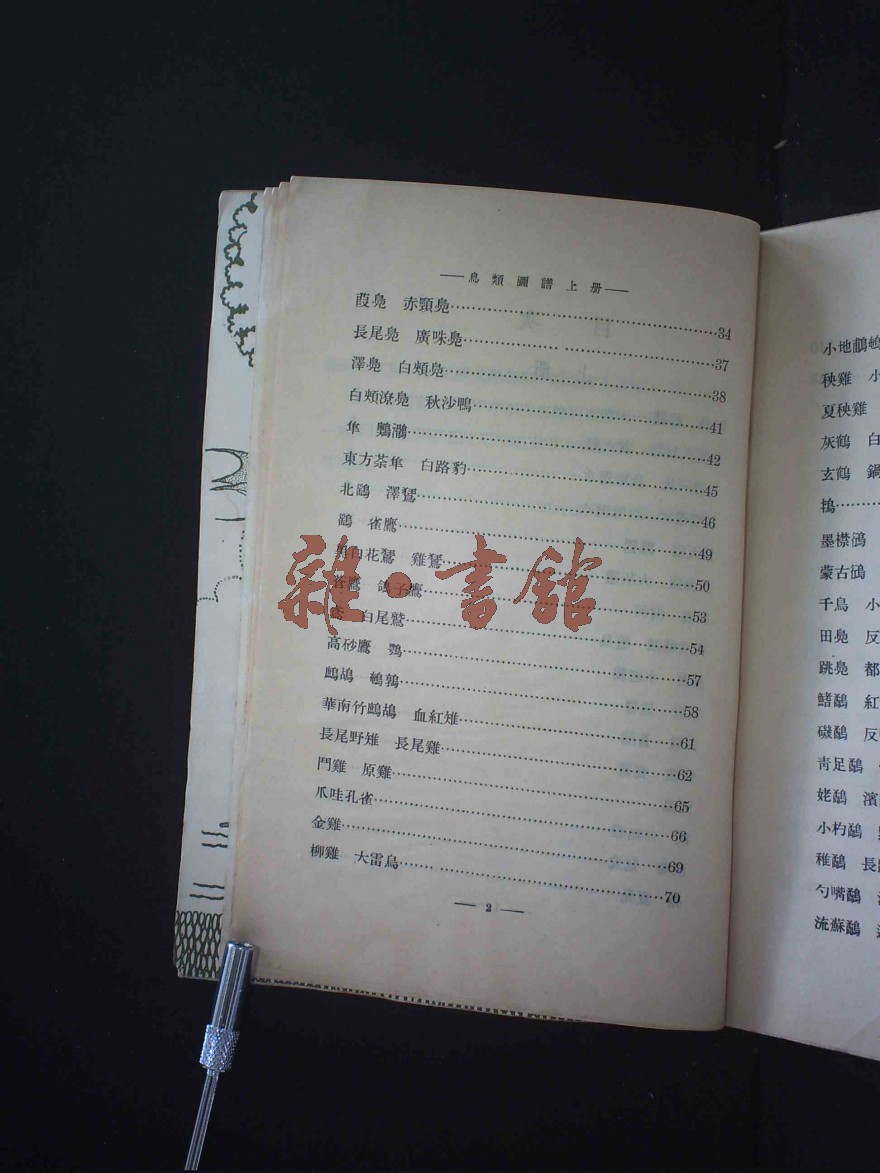 —鳥類圖譜上册—
葭鳧 赤頸鳧……34
長尾鳧 廣咮鳧……37
澤鳧 白頰鳧……38
白頰潦鳧 秋沙鴨……41
隼 鸚鵡……42
東方荼隼 白路豹……45
北鷂 澤鵟……46
鷂 雀鷹……49
黑白花鵟 雞鵟……50
蒼鷹 鴿子鷹……53
白尾鷲……54
高砂鷹 鶚……57
鷓鴣 鵪鶉……58
華南竹鷓鴣 血紅雉……61
長尾野雉 長尾雞……62
鬥雞 原雞……65
爪哇孔雀……66
金雞……69
柳雞 大雷鳥……70
— 2 —
雜·書館
小地鷸
秧雞 小
夏秧雞
灰鶴 白
玄鶴 鍋
鴇……
墨襟鴴
蒙古鴴
千鳥 小
田鳧 反
跳鳧 都
鰭鷸 紅
磯鷸 反
靑足鷸
姥鷸 濱
小杓鷸
稚鷸 長
勺嘴鷸
流蘇鷸